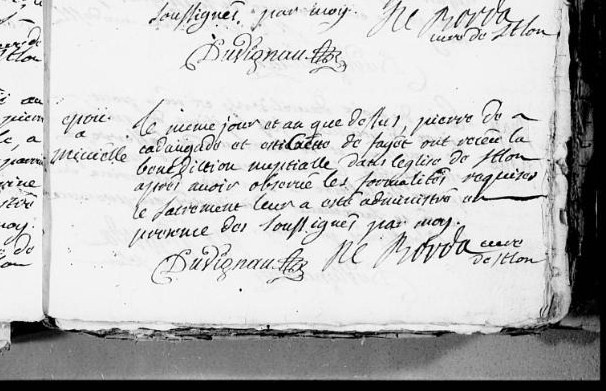 soussignés par moy. De Borda
curé de St lon
Duvignau
epoū
a
Miscielle
le meme jour et an que dessus, pierre de
cadaugade et de fayet ont receu la
benediction nuptialle dans leglise de St lon
apres avoir observé les formalités requises
le sacrement leur a esté administré en
presence des soussignés par moy.
De Borda curé
de St lon
Duvignau